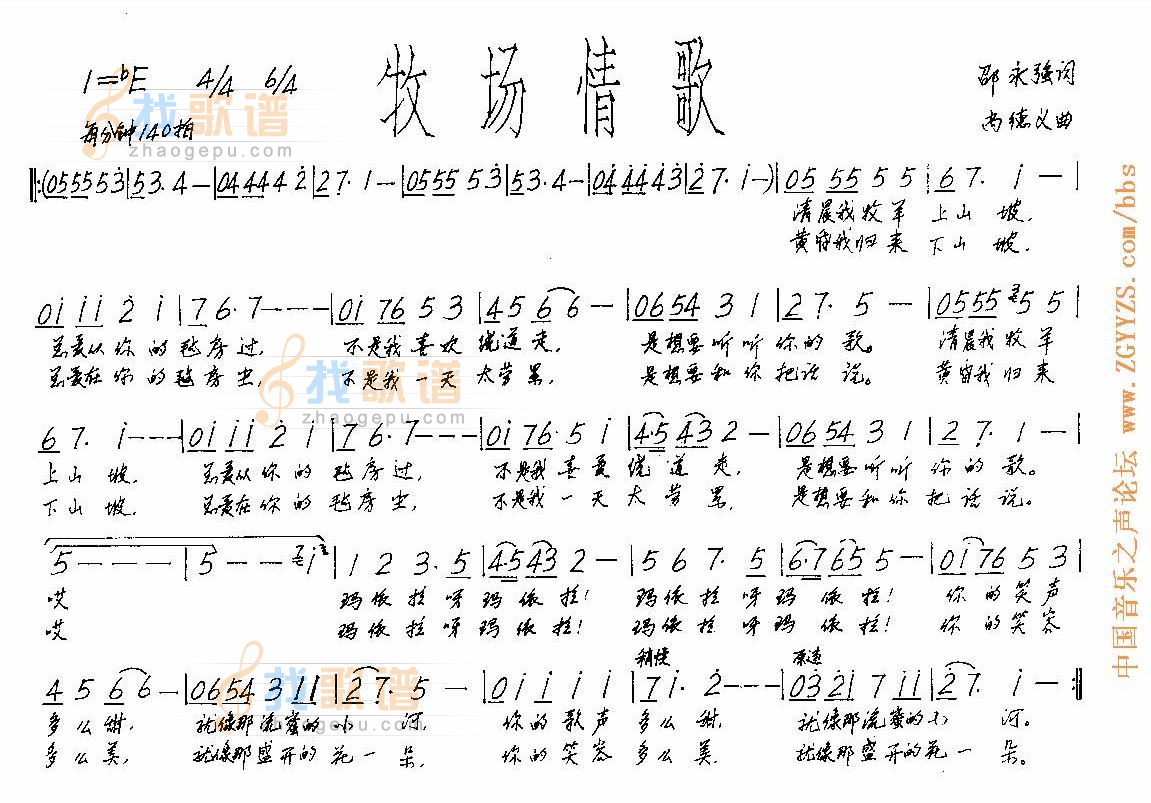 牧场情歌
1=♭E 4/4 6/4
每分钟140拍
邵永强词
高德义曲
找歌谱
zhaogepu.com
‖:(05555 3̇|5 3. 4 —|04444 2̇|2 7. 1 —|05555 3̇|5 3. 4 —|04444 3̇|2̇ 7. i —)|05 55 5 5|6 7. i —|
清晨我牧羊 上山坡,
黄昏我归来 下山坡,
0i ii 2̇ i|7 6. 7 — — —|0i 76 5 3|4 5 6 6 —|0654 3 1|2 7. 5 —|0555 5 5|
总爱从你的毡房过, 不是我喜欢绕道走, 是想要听听你的歌。 清晨我牧羊
总爱在你的毡房坐, 不是我一天太劳累, 是想要和你把话说。 黄昏我归来
6 7. i — — —|0i ii 2̇ i|7 6. 7 — — —|0i 76. 5 i|4.5 43 2 —|0654 3 1|2 7. 1 —|
上山坡, 总爱从你的毡房过, 不是我喜爱绕道走, 是想要听听你的歌。
下山坡, 总爱在你的毡房坐, 不是我一天太劳累, 是想要和你把话说。
5 — — —|5 — — i|1 2 3. 5|4.5 43 2 —|5 6 7. 5|6.7 65 5 —|0i 76 5 3|
哎 玛依拉呀玛依拉! 玛依拉呀玛依拉! 你的笑声
哎 玛依拉呀玛依拉! 玛依拉呀玛依拉! 你的笑容
稍慢 原速
4 5 6 6 —|0654 3 11|2 7. 5 —|0i i i i|7 i. 2̇ — — —|03̇ 2̇i 7 ii|2̇ 7. i —:‖
多么甜, 就像那流蜜的小河, 你的歌声多么甜, 就像那流蜜的小河。
多么美, 就像那盛开的花一朵, 你的笑容多么美, 就像那盛开的花一朵。
找歌谱
zhaogepu.com
找歌谱
zhaogepu.com
中国音乐之声论坛 www.ZGYYZS.com/bbs